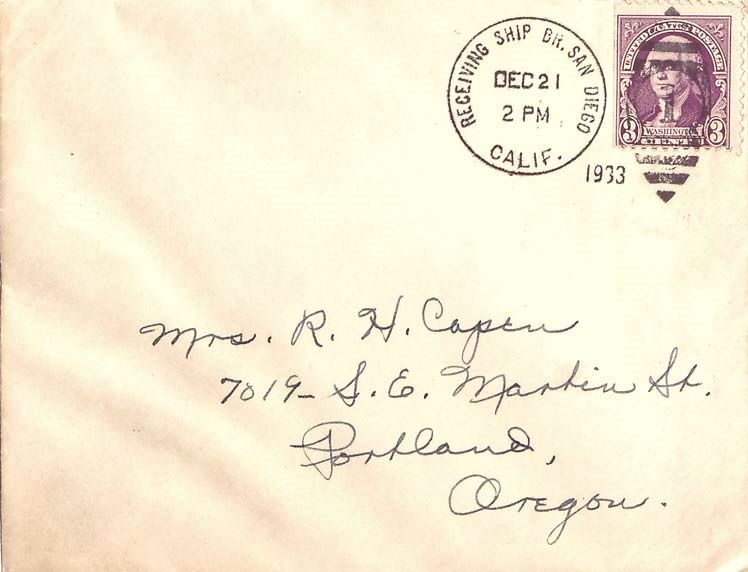 RECEIVING SHIP BR. SAN DIEGO
DEC 21
2 PM
CALIF.
1933
1
UNITED STATES POSTAGE
WASHINGTON
3 3
Mrs. R. H. Capen
7019- S. E. Martin St.
Portland,
Oregon.